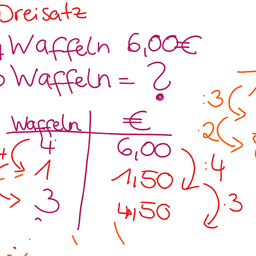 Dreisatz
Waffeln 6,00€
Waffeln = ?
Waffeln €
4 6,00
1 1,50
3 4,50
:4
:3
:3
:2